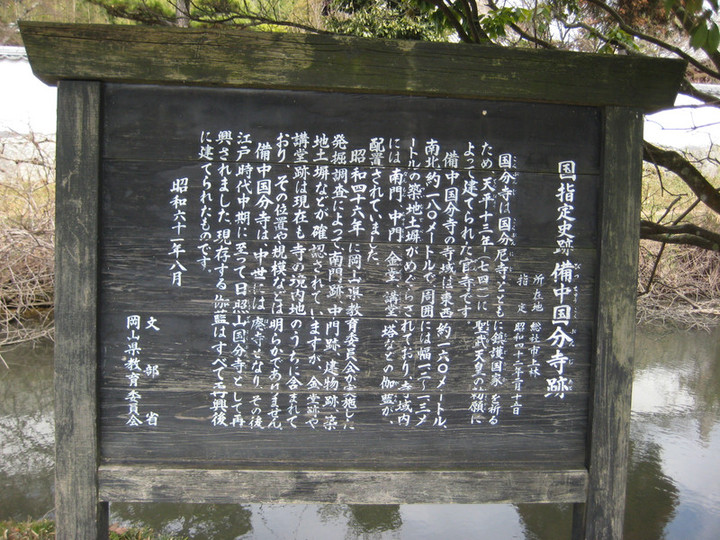 国指定史跡 備中国分寺跡
所在地 総社市上林
指定 昭和四十三年二月十五日
国分寺は国分尼寺とともに鎮護国家を祈る
ため、天平十三年(七四一)に、聖武天皇の勅願に
よって建てられた官寺です。
備中国分寺の寺域は東西約一六〇メートル、
南北約一八〇メートルで、周囲には幅一二〜一三メ
ートルの築地土塀がめぐらされており、寺域内
には、南門、中門、金堂、講堂、塔などの伽藍が、
配置されていました。
昭和四十六年に岡山県教育委員会が実施した
発掘調査によって南門跡、中門跡、建物跡、築
地土塀などが確認されていますが、金堂跡や
講堂跡は現在も寺の境内地のうちに含まれて
おり、その位置や規模などは明らかでありません。
備中国分寺は、中世には廃寺となり、その後、
江戸時代中期に至って日照山国分寺として再
興されました。現存する伽藍はすべて再興後
に建てられたものです。
昭和六十一年八月
文部省
岡山県教育委員会